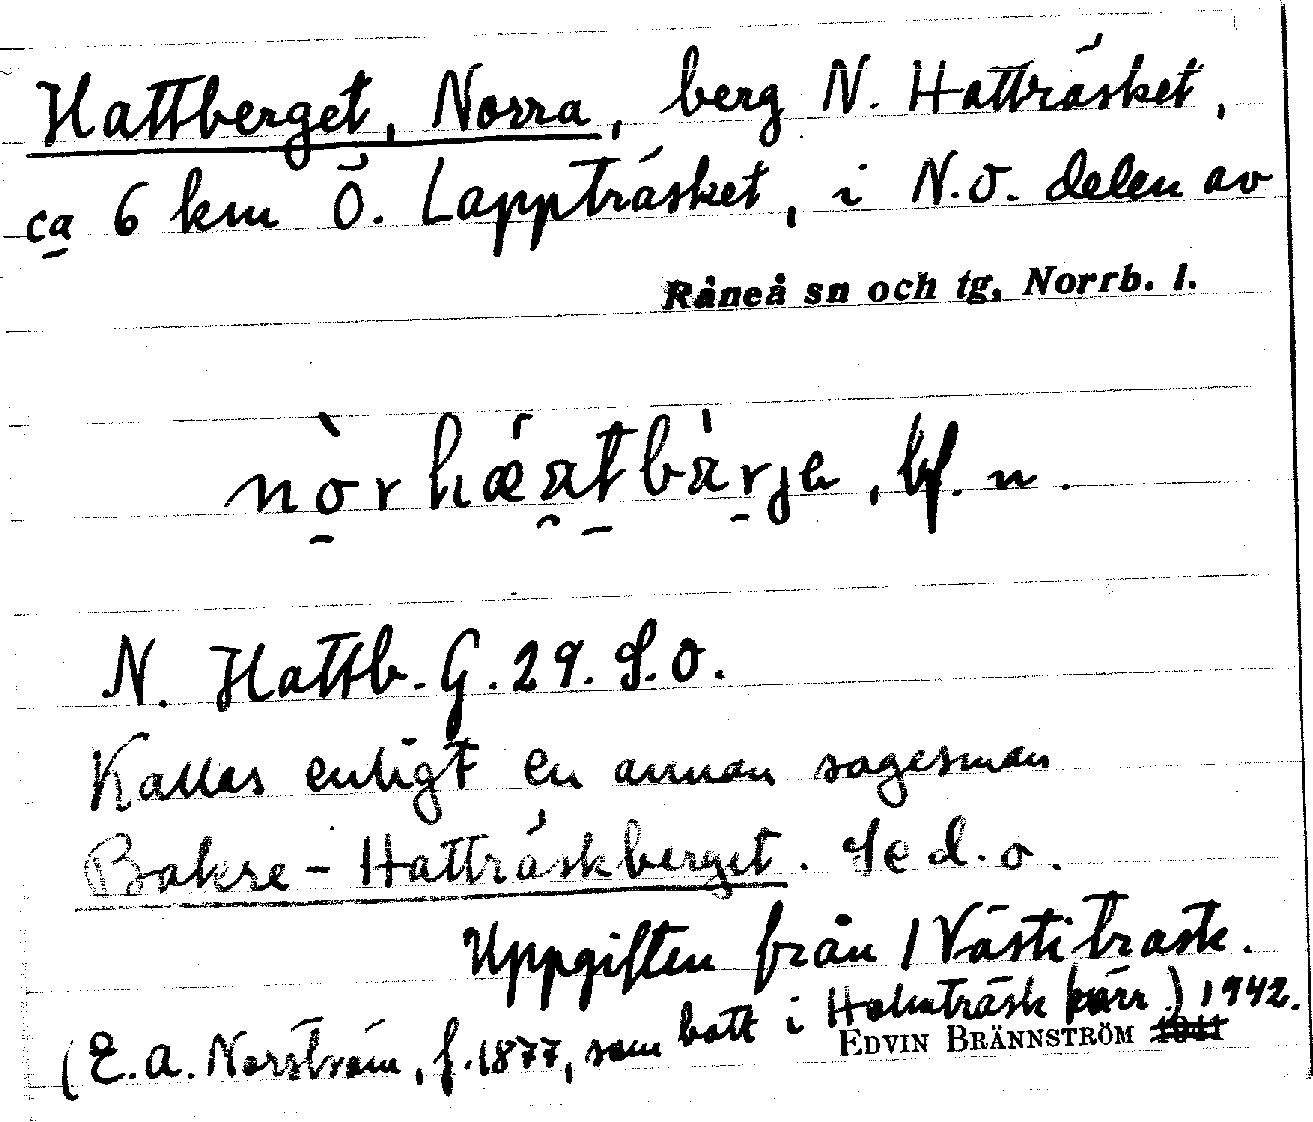 Hattberget, Norra, berg N. Hatträsket,
ca 6 km Ö. Lappträsket, i N.O. delen av
Råneå sn och tg, Norrb. l.
bf. n.
N. Hattb. G. 29. S.O.
Kallas enligt en annan sagesman
Bakre-Hatträskberget. Se d.o.
Uppgiften från Västiträsk.
(E.A. Norström, f. 1877, som bott i Holmträsk ) 1942.
EDVIN BRÄNNSTRÖM 1941